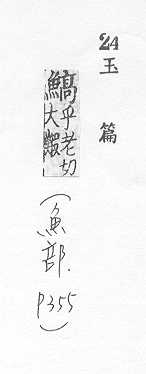 24
玉篇
鰝
乎老切
大鰕
（魚部．P355）